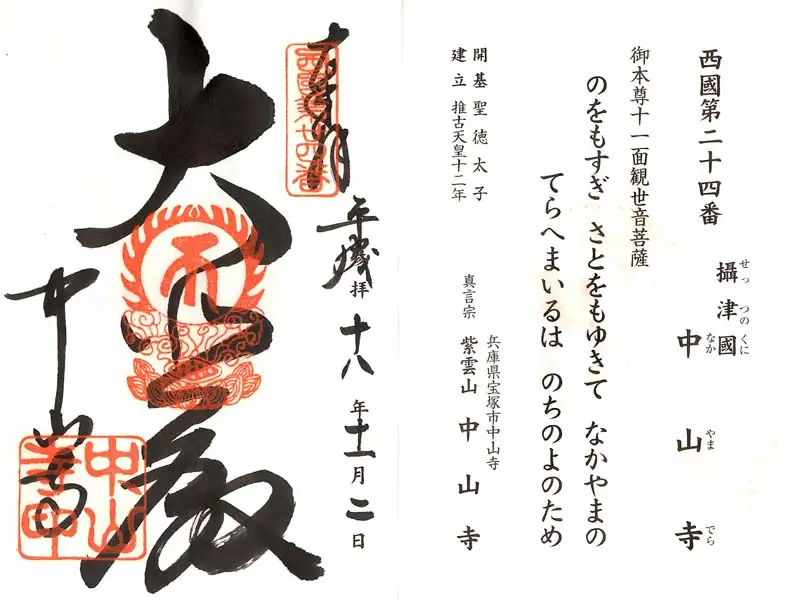 西國第二十四番
攝津國
せっ つの くに
中山寺
なか やま でら
御本尊十一面観世音菩薩
のをもすぎ さとをもゆきて なかやまの
てらへまいるは のちのよのため
開基 聖徳太子
建立 推古天皇十二年
兵庫県宝塚市中山寺
真言宗 紫雲山 中山寺
奉拝
西國第廿四番
平成拝十八年十一月二日
大悲殿
中山寺
中山寺印